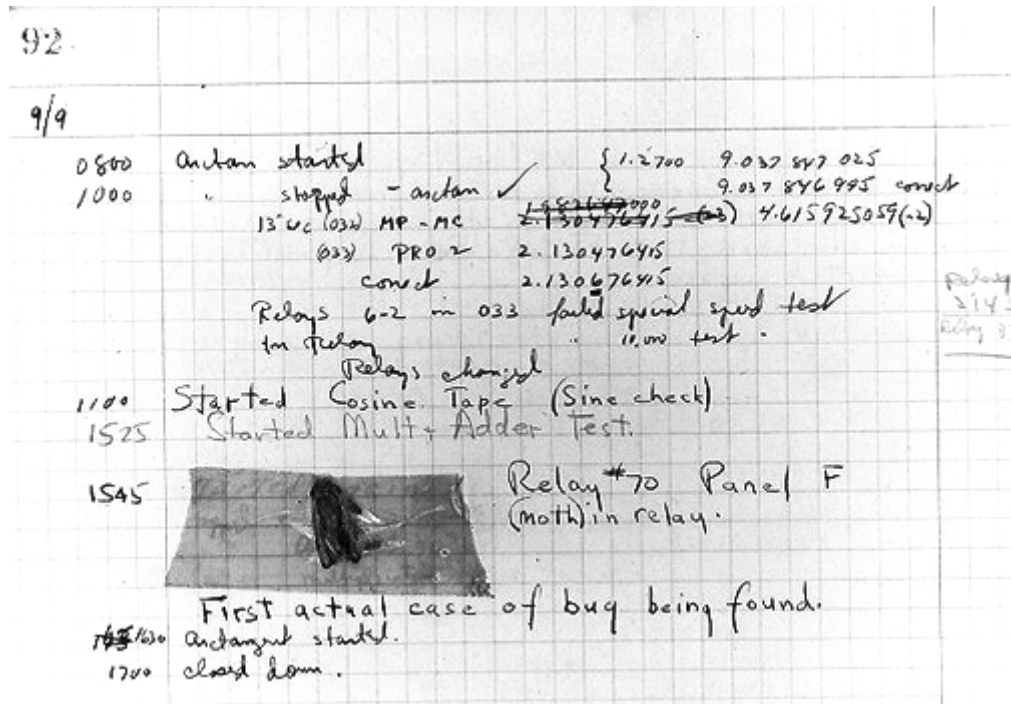 92
9/9
0800 Antan started { 1.2700 9.037 847 025
1000 " stopped - antan ✓ 9.037 846 995 conect
13"uc (032) MP - MC 2.130476415 (-3) 4.615925059(-2)
(033) PRO 2 2.130476415
conect 2.130676415
Relays 6-2 in 033 failed special speed test
in Relay " 10.000 test .
Relays changed
1100 Started Cosine Tape (Sine check)
1525 Started Mult + Adder Test.
1545 Relay #70 Panel F
(moth) in relay.
First actual case of bug being found.
1630 Antangent started.
1700 closed down .
Relay
Relay 3